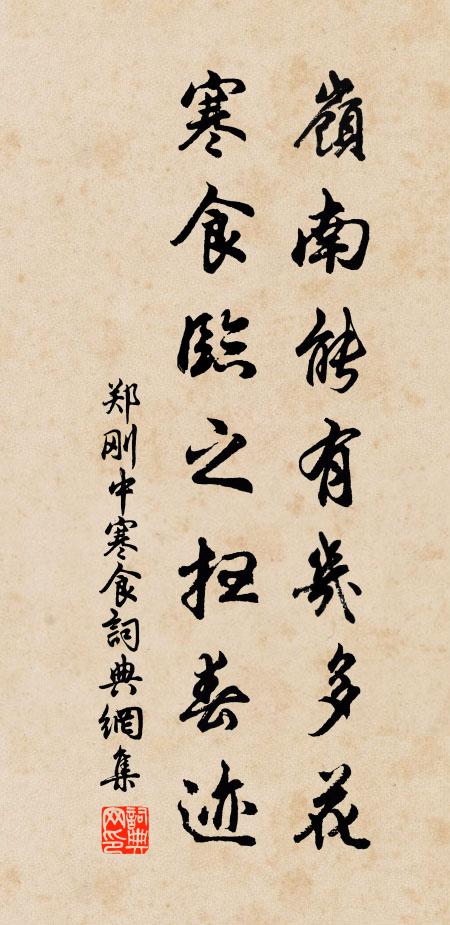 嶺南能有幾多花
寒食臨之扫春迹
郑刚中寒食詞典網集
詞典
网印